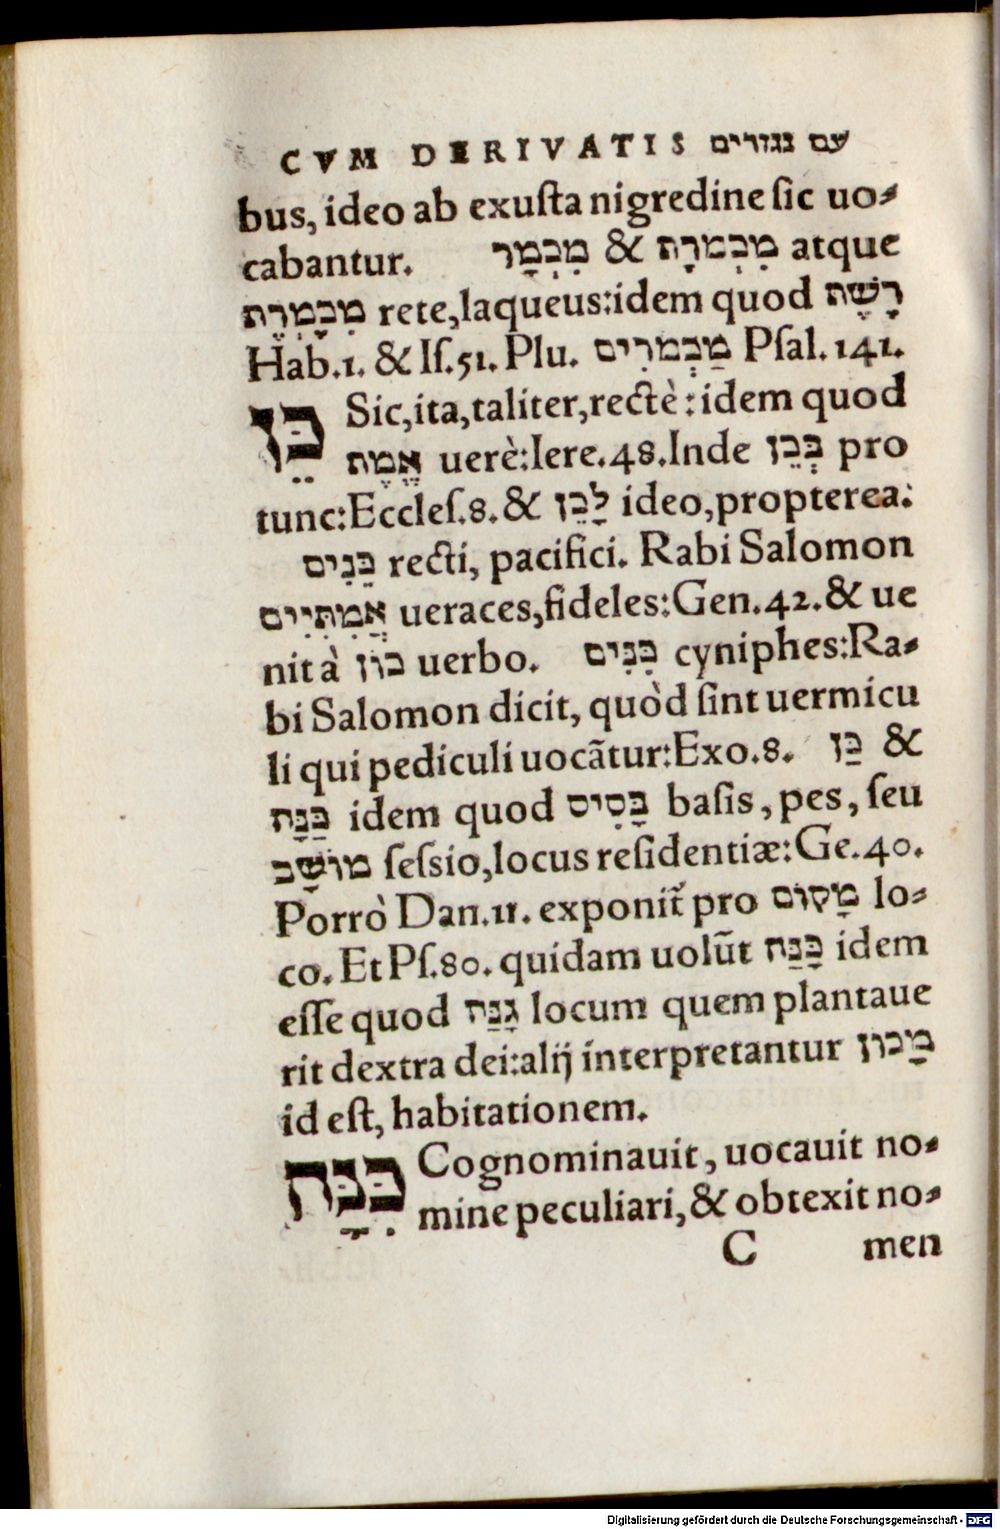 CVM DERIVATIS עם נגזרים
bus, ideo ab exusta nigredine sic uo⸗
cabantur. מִכְמָר & מִכְמֹרֶת atque
מִכְמֶרֶת rete, laqueus: idem quod רֶשֶׁת
Hab.1. & Is.51. Plu. מַכְמֹרִים Psal.141.
כֵּן Sic, ita, taliter, rectè: idem quod
אֱמֶת uerè: Iere.48. Inde בְּכֵן pro
tunc: Eccles.8. & לָכֵן ideo, propterea:
כֵּנִים recti, pacifici. Rabi Salomon
אֲמִתִּיִּים ueraces, fideles: Gen.42. & ue
nit à כון uerbo. כִּנִּים cyniphes: Ra⸗
bi Salomon dicit, quòd sint uermicu
li qui pediculi uocãtur: Exo.8. כַּן &
כַּנָּה idem quod בָּסִיס basis, pes, seu
מוֹשָׁב sessio, locus residentiæ: Ge.40.
Porrò Dan.11. exponit᷑ pro מָקוֹם lo⸗
co. Et Ps.80. quidam uolũt כַּנָּה idem
esse quod גַּנָּה locum quem plantaue
rit dextra dei: alij interpretantur מָכוֹן
id est, habitationem.
כִּנָּה Cognominauit, uocauit no⸗
mine peculiari, & obtexit no⸗
C men
Digitalisierung gefördert durch die Deutsche Forschungsgemeinschaft - DFG